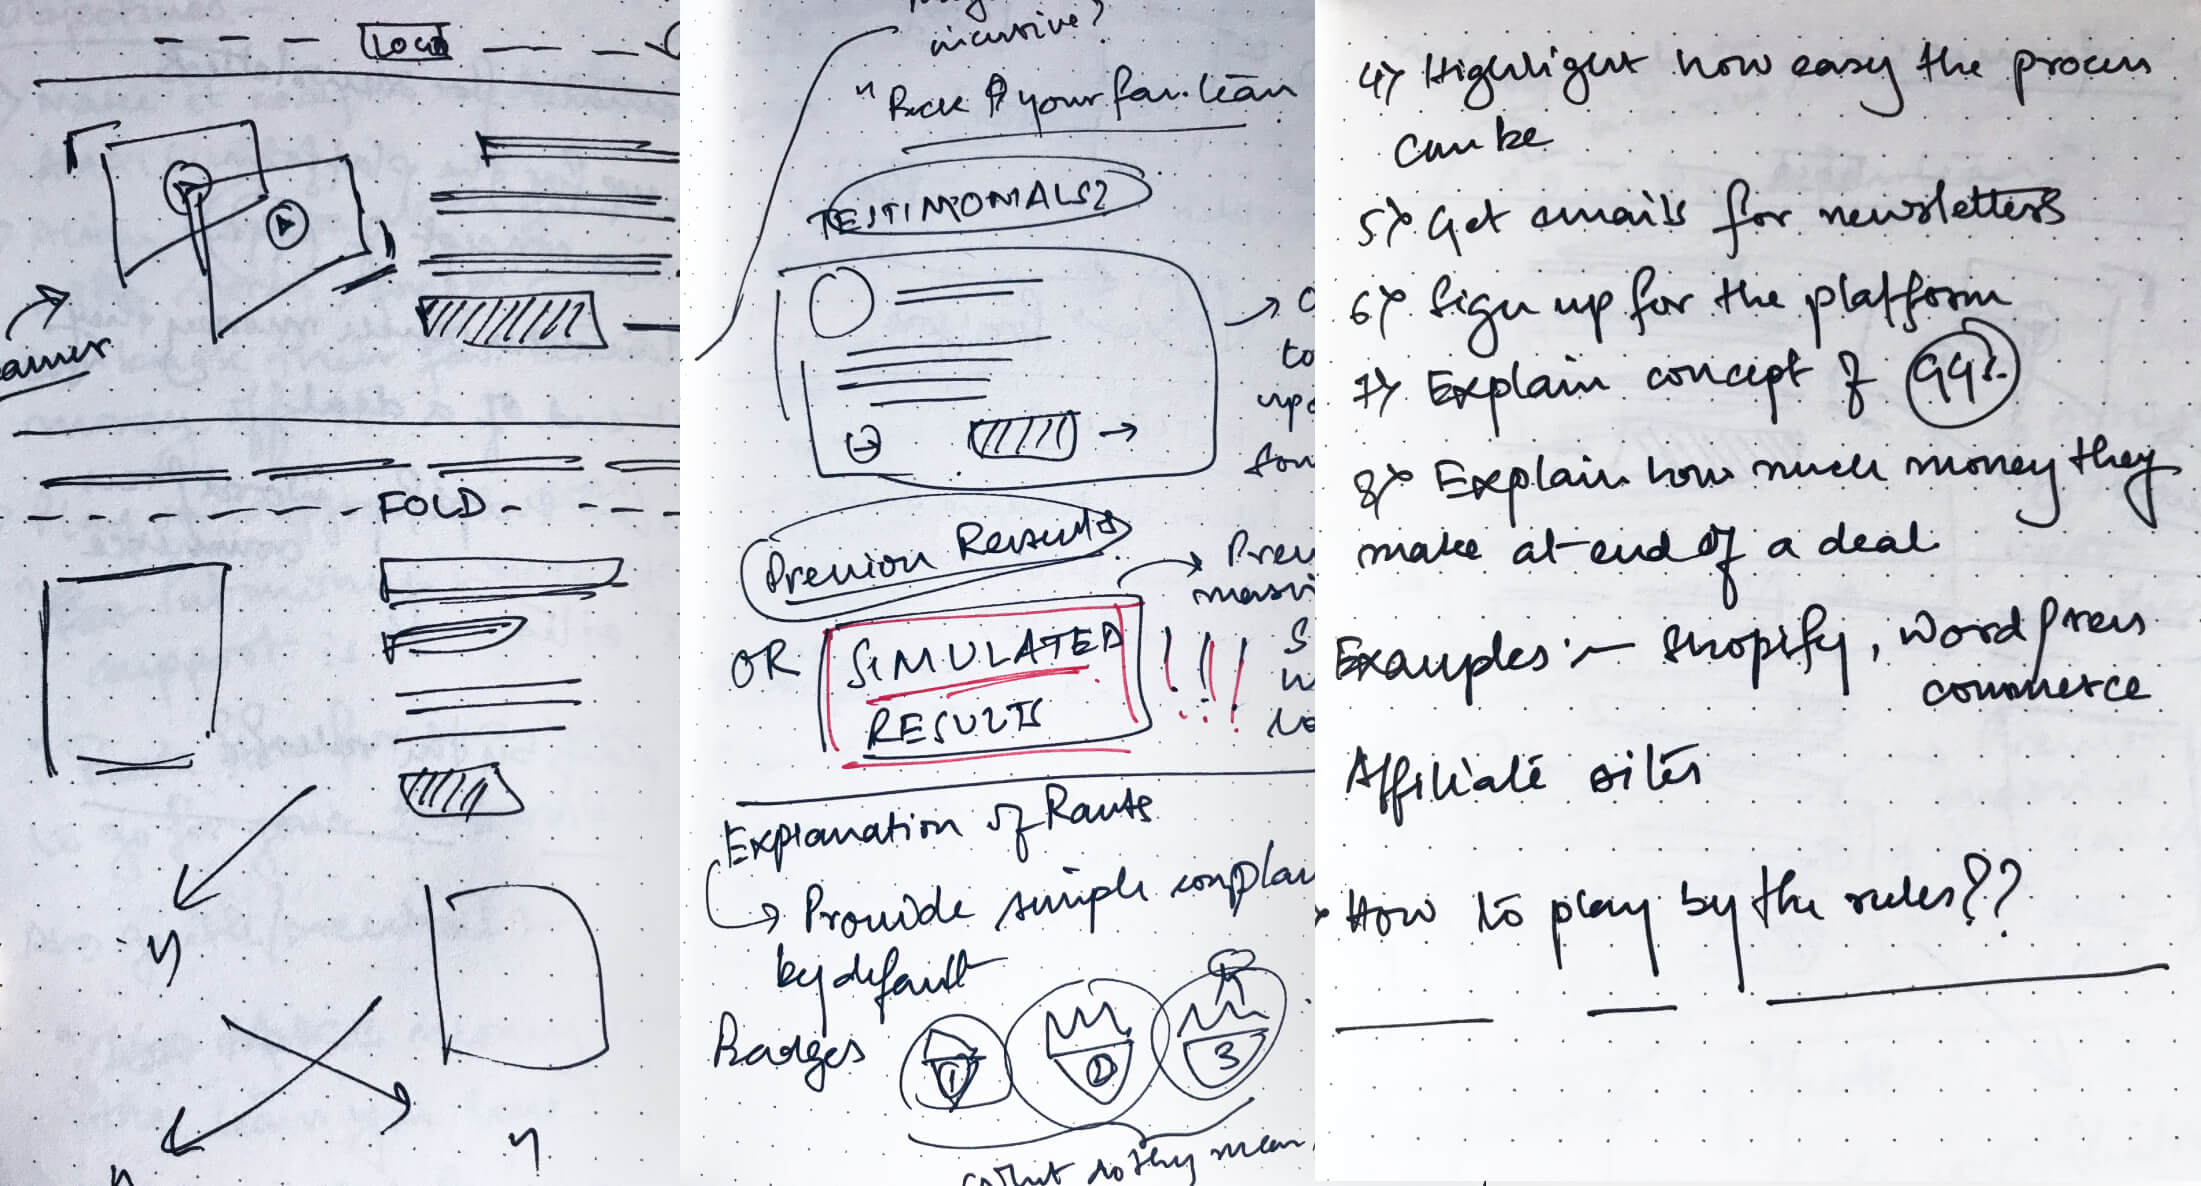 LOGO
FOLD
incursive?
"Back your fav. team
TESTIMONIALS?
to
Previous Results
OR
SIMULATED
RESULTS
!!!
Explanation of Ranks
Provide simple
by default
Badges
1
2
3
What do they mean
4> Highlight how easy the process
can be
5> Get emails for newsletters
6> Sign up for the platform
7> Explain concept of 99%
8> Explain how much money they
make at end of a deal
Examples :- Shopify, Wordpress
commerce
Affiliate sites
How to play by the rules??